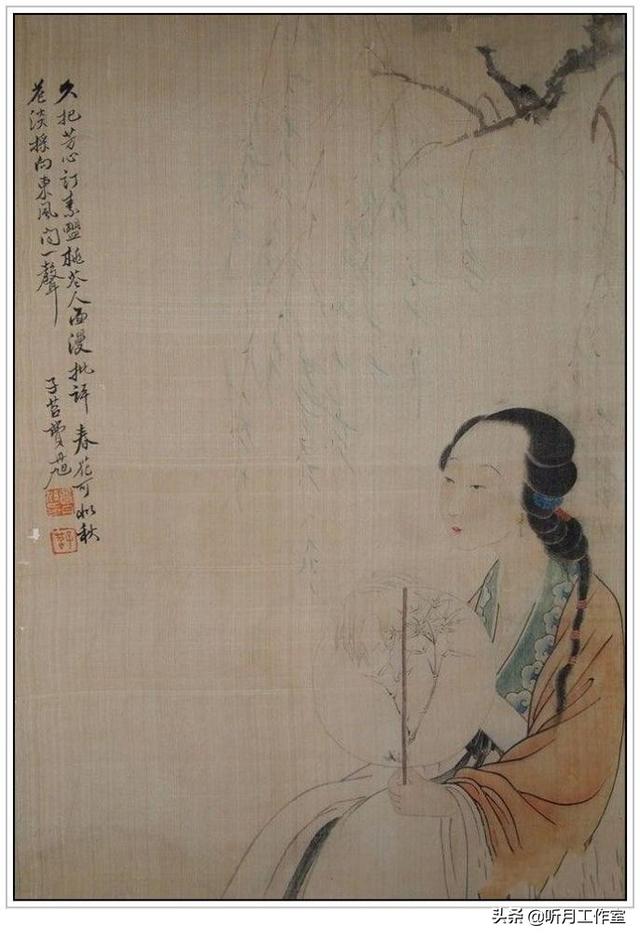 久把芳心訂素盟桃花人面漫批評春花可似秋
花淡採向東風問一聲
子苕費丹旭
子苕
头条 @听月工作室